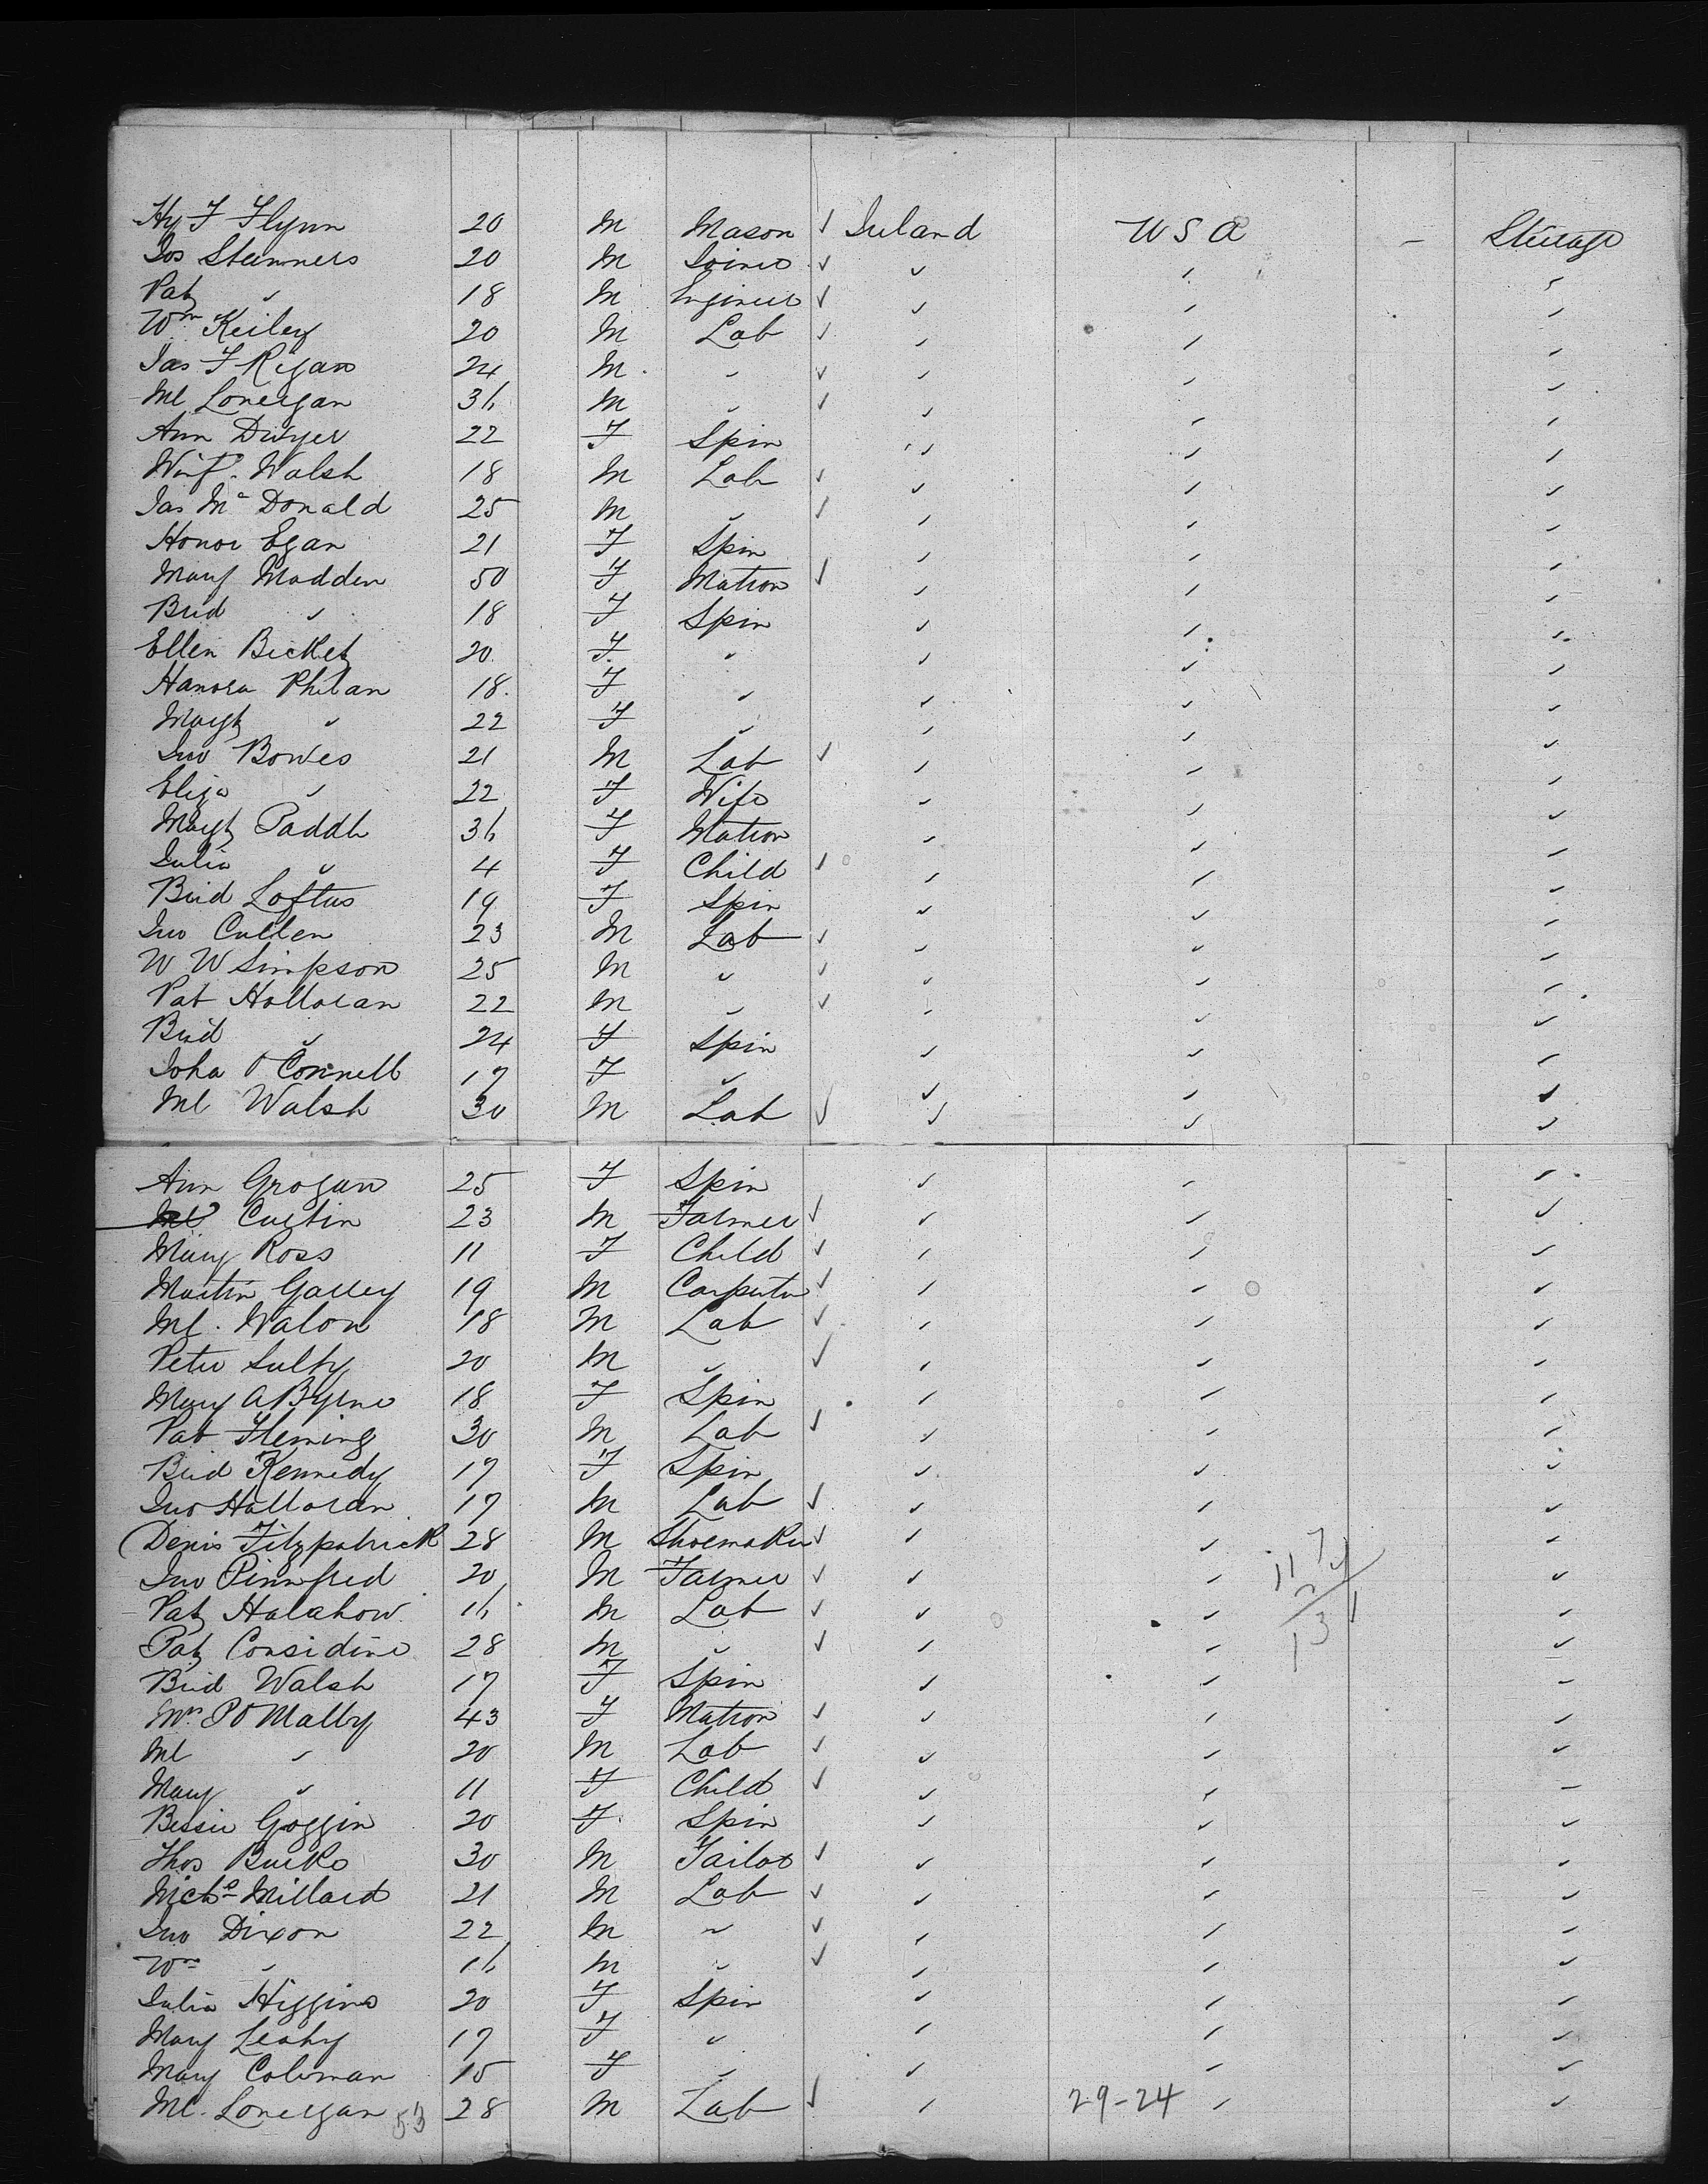 Hy F Flynn 20 M Mason ✓ Ireland U S A - Steerage
Jos Stammers 20 M Joiner ✓ " " "
Pat " 18 M Engineer ✓ " " "
Wm Keiley 20 M Lab ✓ " " "
Jas F Regan 24 M " ✓ " " "
Ml Lonergan 36 M " ✓ " " "
Ann Dwyer 22 F Spin " " "
Winf. Walsh 18 M Lab ✓ " " "
Jas Mc Donald 25 M " ✓ " " "
Honor Egan 21 F Spin " " "
Mary Madden 50 F Matron ✓ " " "
Brid " 18 F Spin " " "
Ellen Bicket 20 F " " " "
Hanora Philan 18 F " " " "
Margt " 22 F " " " "
Jno Bowes 21 M Lab ✓ " " "
Eliza " 22 F Wife " " "
Margt 36 F Matron " " "
Julia " 4 F Child ✓ " " "
Brid Loftus 19 F Spin " " "
Jno Cullen 23 M Lab ✓ " " "
W W Simpson 25 M " ✓ " " "
Pat Holloran 22 M " ✓ " " "
Brid " 24 F Spin " " "
Joha O Connell 17 F " " " "
Ml Walsh 30 M Lab ✓ " " "
Ann Grogan 25 F Spin " " "
Ml Curtin 23 M Farmer ✓ " " "
Mary Ross 11 F Child ✓ " " "
Martin Galley 19 M Carpenter ✓ " " "
Ml. Walon 18 M Lab ✓ " " "
Peter 20 M " ✓ " " "
Mary A Byrne 18 F Spin " " "
Pat Fleming 30 M Lab ✓ " " "
Brid Kennedy 17 F Spin " " "
Jno Halloran 17 M Lab ✓ " " "
Denis Fitzpatrick 28 M Shoemaker ✓ " " "
Jno Pinnfred 20 M Farmer ✓ " " "
Pat Halahow 16 M Lab ✓ " " "
Pat Considine 28 M " ✓ " " "
Brid Walsh 17 F Spin " " "
Mrs P O Mally 43 F Matron ✓ " " "
Ml " 20 M Lab ✓ " " "
Mary " 11 F Child ✓ " " "
Bessie Goggin 20 F Spin " " "
Thos Burke 30 M Tailor ✓ " " "
Nichs Millard 21 M Lab ✓ " " "
Jno Dixon 22 M " ✓ " " "
Wm " 16 M " ✓ " " "
Julia Higgins 20 F Spin " " "
Mary Leahy 17 F " " " "
Mary Coleman 15 F " " " "
Ml. Lonergan 53 28 M Lab ✓ " 29-24 " "